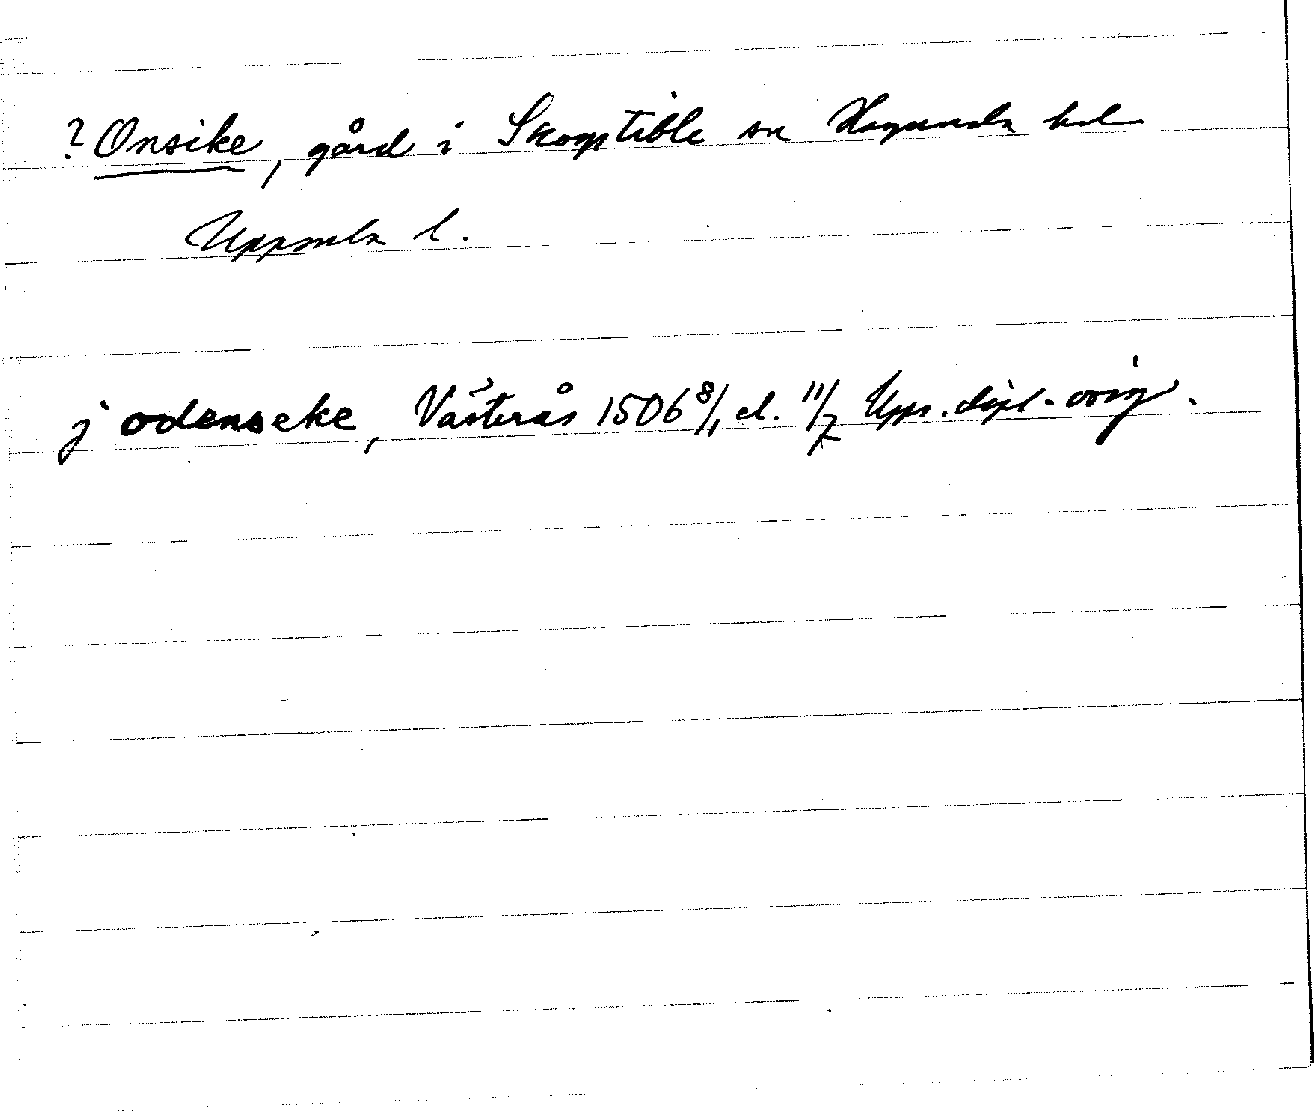 ? Onsike, gård i Skogstible sn Hagunda hd
Uppsala l.
j odenseke, Västerås 1506 8/1 el. 11/7 Upps. dipl. orig.